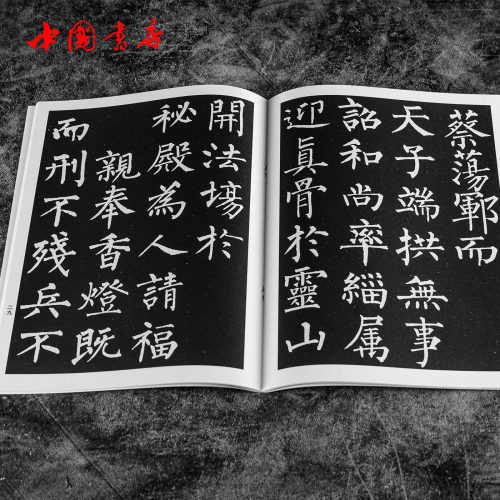 中國書店
蔡蕩鄆而
天子端拱無事
詔和尚率緇属
迎真骨於靈山
開法場於
秘殿為人請福
親奉香燈既
而刑不殘兵不
二九